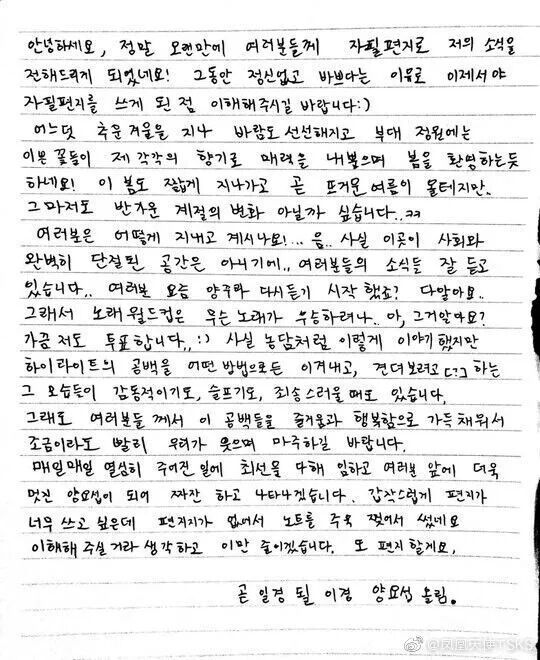 안녕하세요, 정말 오랜만에 여러분들께 자필편지로 저의 소식을
전해드리게 되었네요! 그동안 정신없고 바쁘다는 이유로 이제서야
자필편지를 쓰게 된 점 이해해주시길 바랍니다:)
어느덧 추운 겨울을 지나 바람도 선선해지고 부대 정원에는
이쁜 꽃들이 제 각각의 향기로 매력을 내뿜으며 봄을 환영하는듯
하네요! 이 봄도 짧게 지나가고 곧 뜨거운 여름이 올테지만..
그마저도 반가운 계절의 변화 아닐까 싶습니다..ㅋㅋ
여러분은 어떻게 지내고 계시나요!... 음.. 사실 이곳이 사회와
완벽히 단절된 공간은 아니기에.. 여러분들의 소식들 잘 듣고
있습니다.. 여러분 요즘 양주라 다시듣기 시작 했죠? 다알아요..
그래서 노래 월드컵은 무슨 노래가 우승하려나.. 아, 그거알아요?
가끔 저도 투표합니다..:) 사실 농담처럼 이렇게 이야기 했지만
하이라이트의 공백을 어떤 방법으로든 이겨내고, 견뎌보려고[?] 하는
그 모습들이 감동적이기도, 슬프기도, 죄송스러울 때도 있습니다.
그래도 여러분들 께서 이 공백들을 즐거움과 행복함으로 가득 채워서
조금이라도 빨리 우리가 웃으며 마주하길 바랍니다.
매일매일 열심히 주어진 일에 최선을 다해 임하고 여러분 앞에 더욱
멋진 양요섭이 되어 짜잔 하고 나타나겠습니다. 갑작스럽게 편지가
너무 쓰고 싶은데 편지지가 없어서 노트를 주욱 찢어서 썼네요
이해해 주실 거라 생각하고 이만 줄이겠습니다. 또 편지 할게요.
곧 일경 될 이경 양요섭 올림.
@凤凰天使TSKS